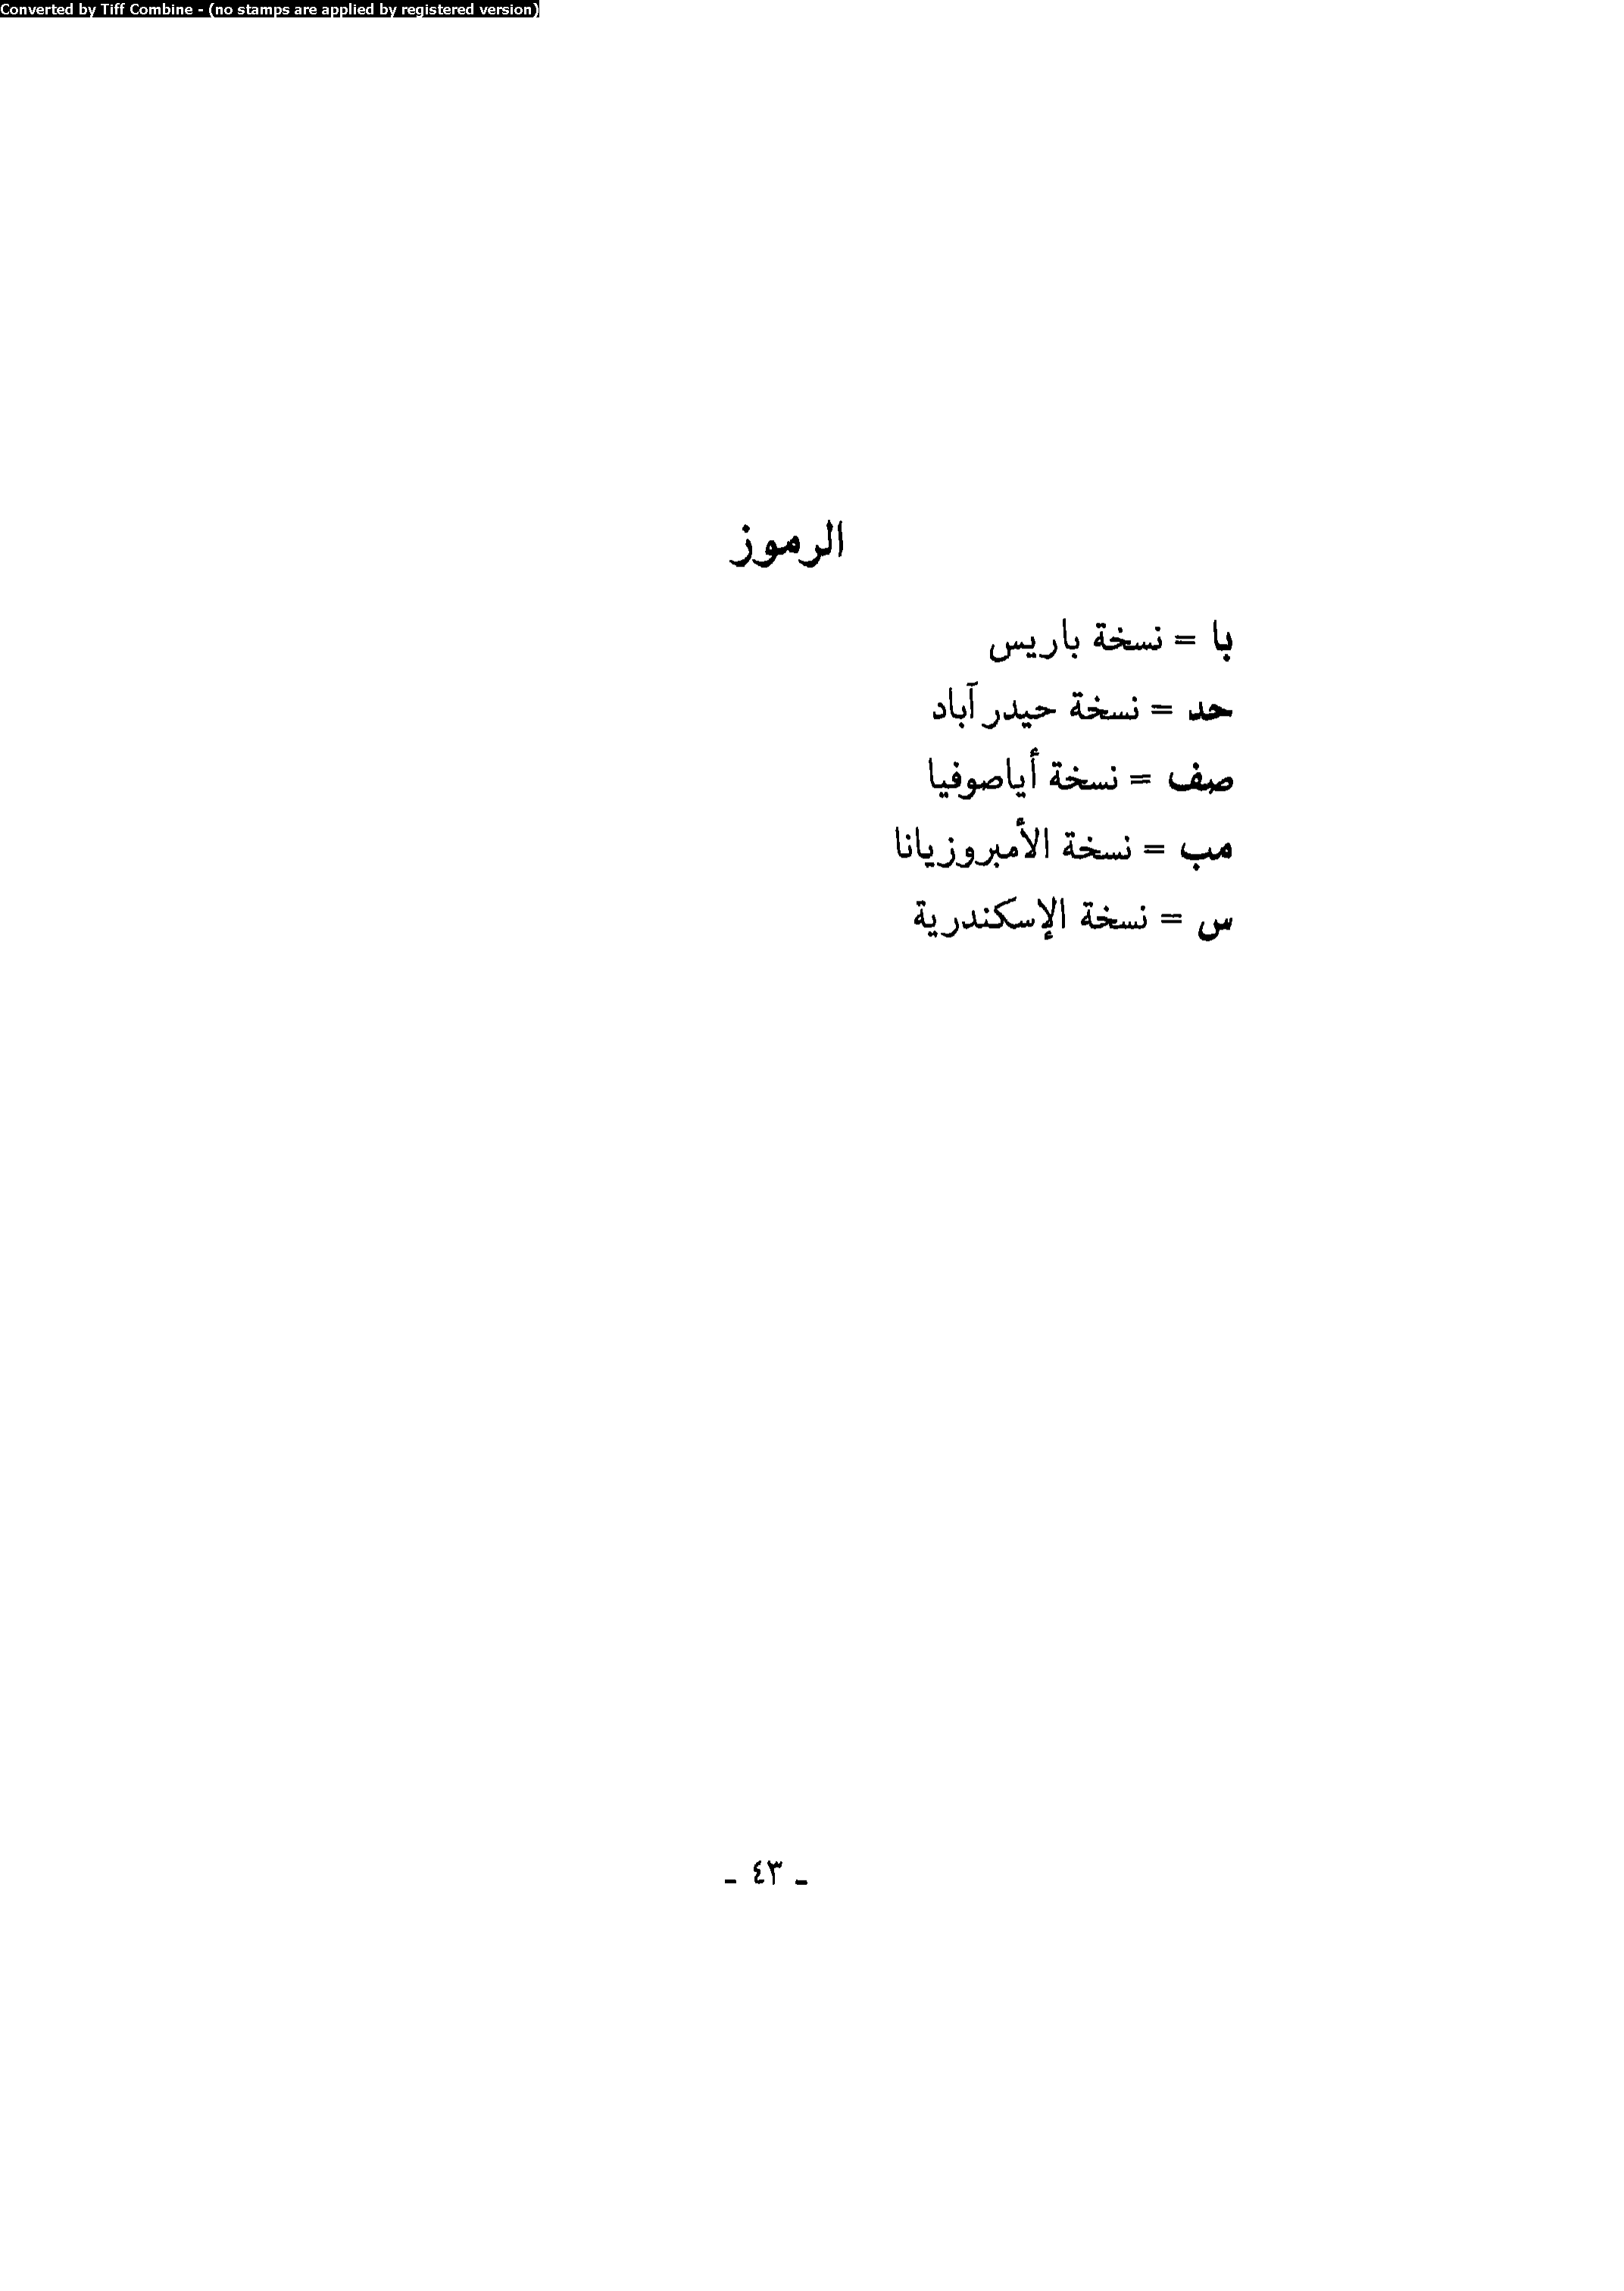 Converted by Tiff Combine - (no stamps are applied by registered version)
الرموز
با = نسخة باريس
حد = نسخة حيدر آباد
صف = نسخة أياصوفيا
مب = نسخة الأمبروزيانا
س = نسخة الإسكندرية
ـ ٤٣ ـ